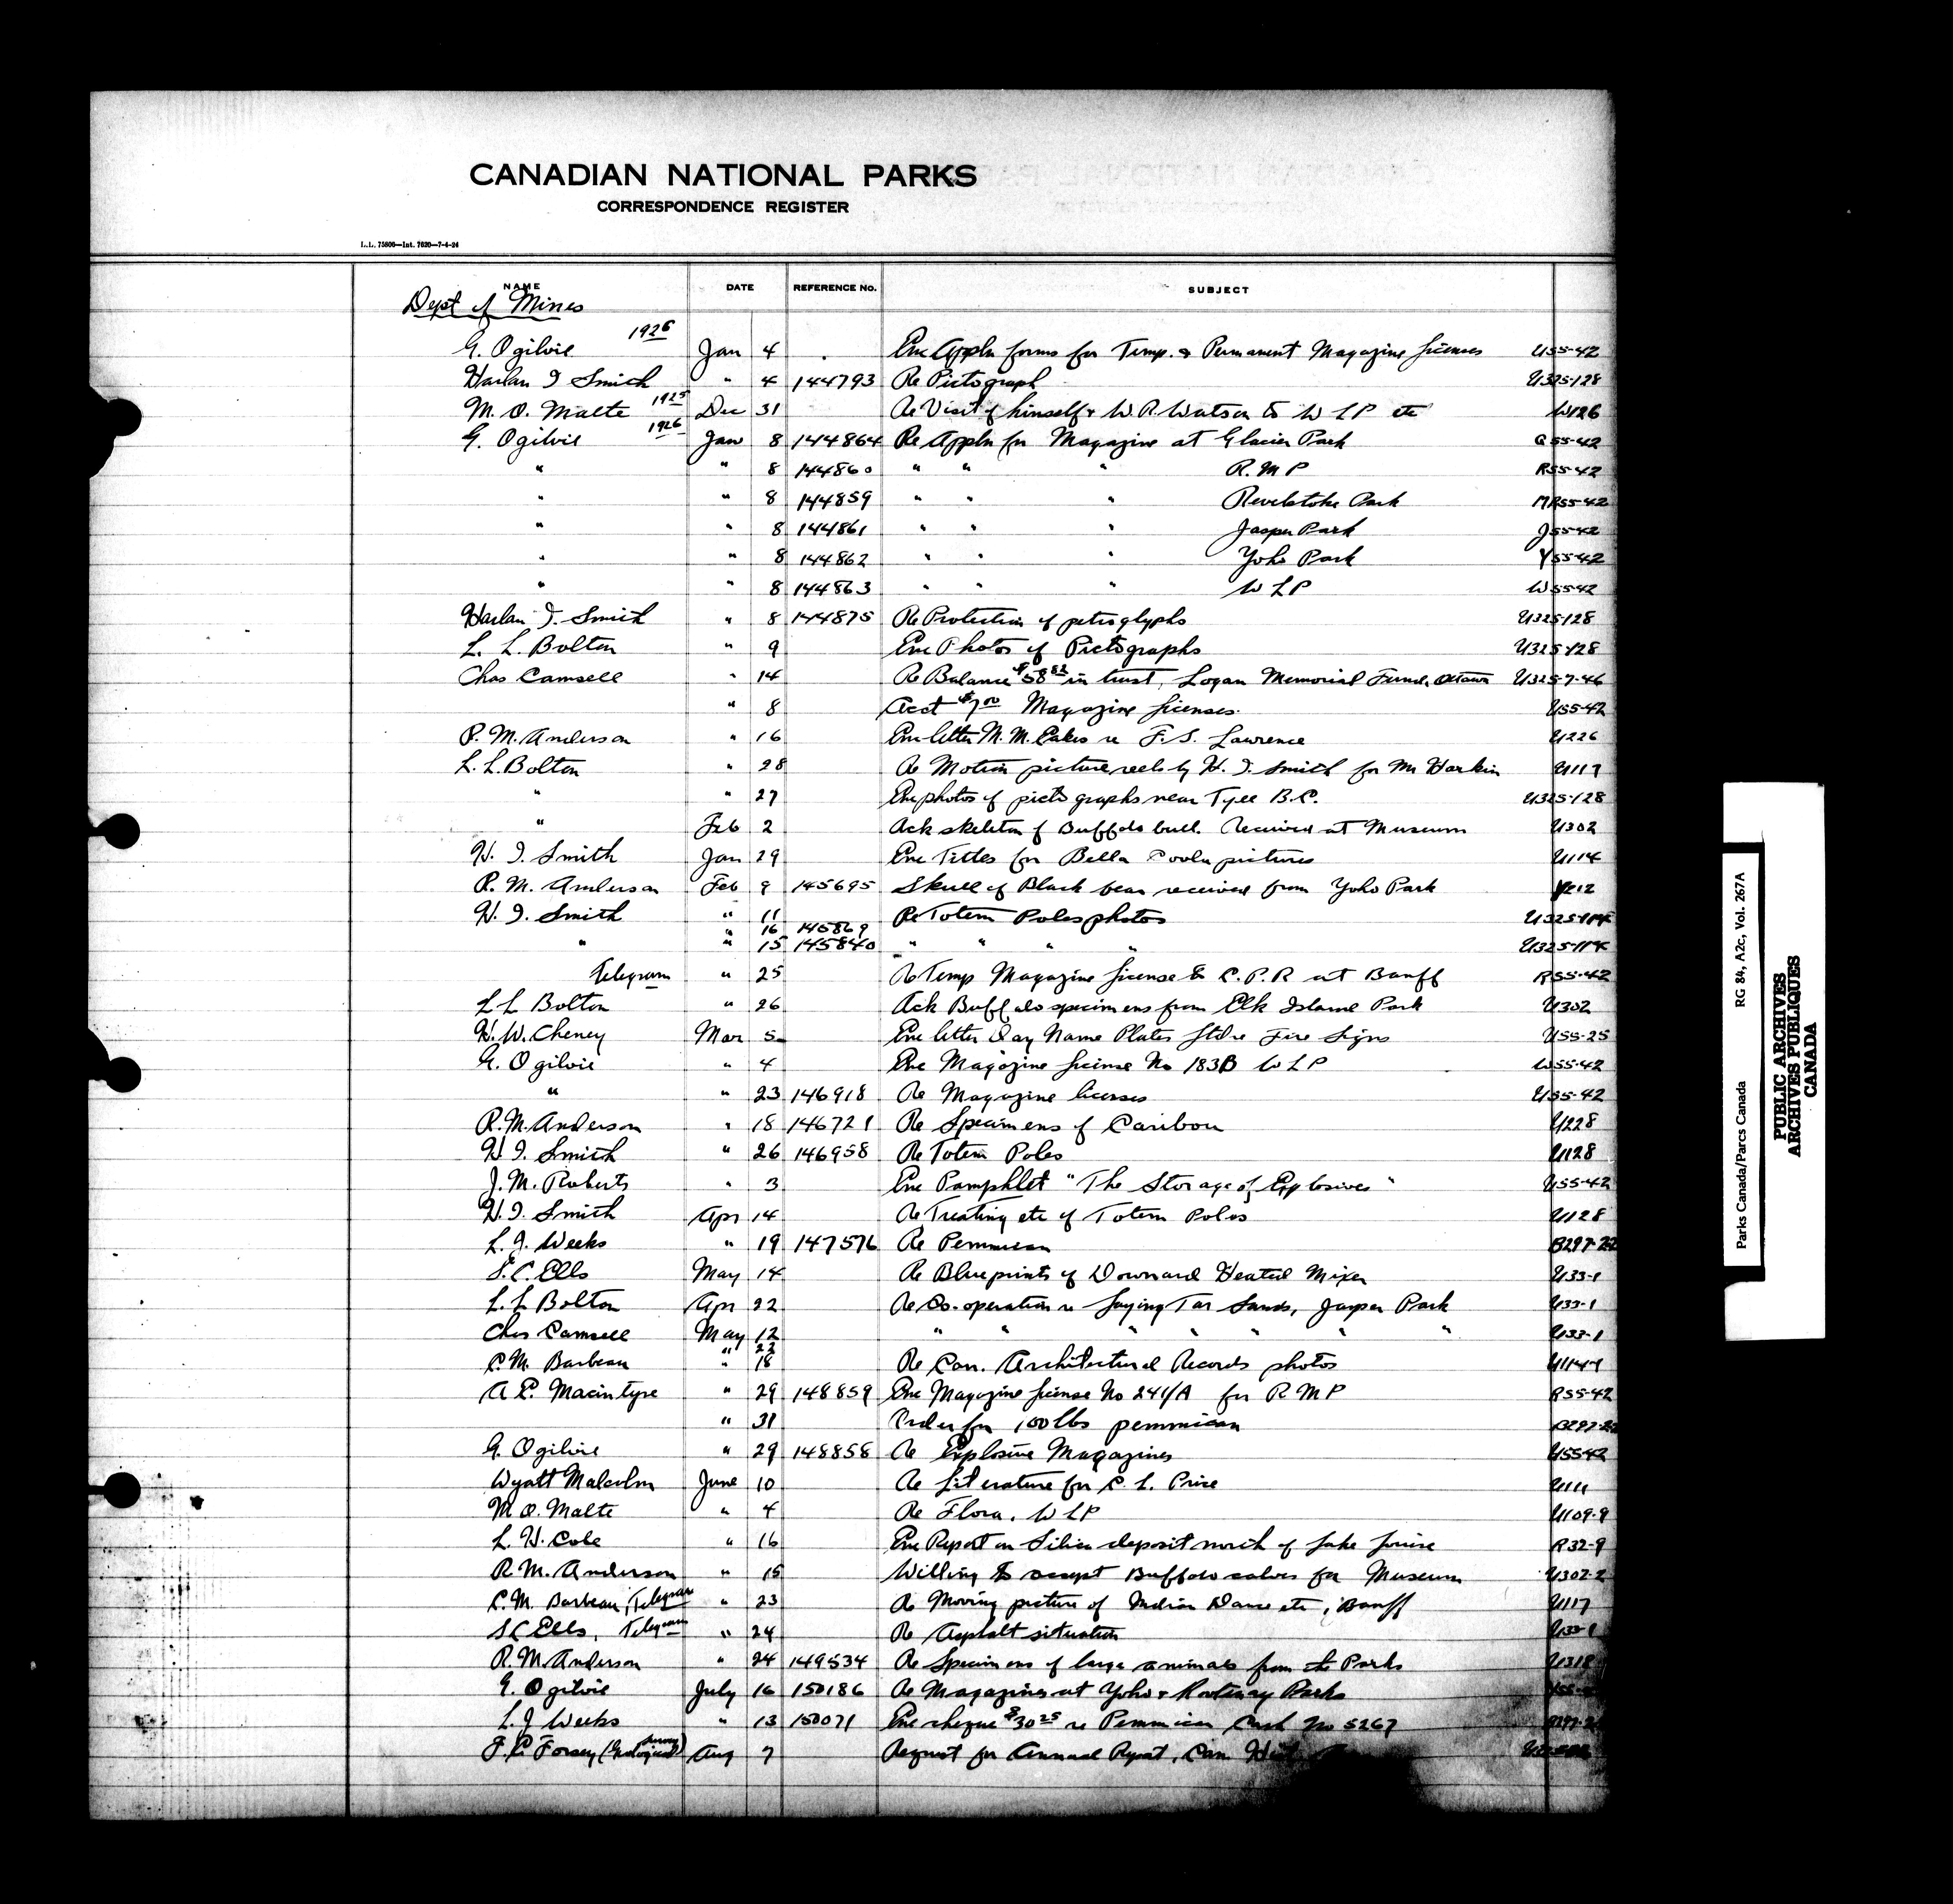 CANADIAN NATIONAL PARKS
CORRESPONDENCE REGISTER
L.L. 75806—Int. 7620—7-4-24
NAME DATE REFERENCE No. SUBJECT
Dept of Mines
1926
G. Ogilvie Jan 4 Enc Appln forms for Temp. & Permanent Magazine Licenses U55-42
Harlan I Smith " 4 144793 Re Pictograph U325-128
M. O. Malte 1925 Dec 31 Re Visit of himself & W. R. Watson to W L P etc W126
G. Ogilvie 1926 Jan 8 144864 Re Appln for Magazine at Glacier Park G55-42
" " 8 144860 " " " R. M P R55-42
" " 8 144859 " " " Revelstoke Park MR55-42
" " 8 144861 " " " Jasper Park J55-42
" " 8 144862 " " " Yoho Park Y55-42
" " 8 144863 " " " W L P W55-42
Harlan I. Smith " 8 144875 Re Protection of petroglyphs U325-128
L. L. Bolton " 9 Enc Photos of Pictographs U325-128
Chas Camsell " 14 Re Balance $58 82 in trust, Logan Memorial Fund, Ottawa U325-7-46
" 8 Acct $7 00 Magazine Licenses. U55-42
R. M. Anderson " 16 Enc letter M. M. Eakes re F. S. Lawrence U226
L. L. Bolton " 28 Re Motion picture reels by H. I. Smith for Mr Harkin U117
" " 27 Enc photos of pictographs near Tyee B.C. U325-128
" Feb 2 Ack skeleton of Buffalo bull. Received at Museum U302
H. I. Smith Jan 29 Enc Titles for Bella Coola pictures U114
R. M. Anderson Feb 9 145695 Skull of Black bear received from Yoho Park Y212
H. I. Smith " 11 Re Totem Poles photos U325-114
" 16 145869
" " 15 145840 " " " " U325-114
Telegram " 25 Re Temp Magazine License to C.P.R at Banff R55-42
L L Bolton " 26 Ack Buffalo specimens from Elk Island Park U302
H. W. Cheney Mar 5 Enc letter Day Name Plates Ltd re Fire Signs U55-25
G. Ogilvie " 4 Enc Magazine License No 183B W L P W55-42
" " 23 146918 Re Magazine licenses U55-42
R. M. Anderson " 18 146721 Re Specimens of Caribou U228
H I. Smith " 26 146958 Re Totem Poles U128
J. M. Roberts " 3 Enc Pamphlet "The Storage of Explosives" U55-42
H. I. Smith Apr 14 Re Treating etc of Totem Poles U128
L. J. Weeks " 19 147576 Re Pemmican B297-22
S. C. Ells May 14 Re Blueprints of Downard Heated Mixer U33-1
L. L Bolton Apr 22 Re Co-operation re Laying Tar Sands, Jasper Park U33-1
Chas Camsell May 12 " " " " " " " U33-1
" 22
C. M. Barbeau " 18 Re Can. Architectural Records photos U114-1
A E. Macintyre " 29 148859 Enc Magazine License No 241/A for R M P R55-42
" 31 Order for 100 lbs pemmican B297-22
G. Ogilvie " 29 148858 Re Explosive Magazines U55-42
Wyatt Malcolm June 10 Re Literature for C. L. Price U111
M O. Malte " 4 Re Flora. W L P U109-9
L. H. Cole " 16 Enc Report on Silica deposit north of Lake Louise R32-9
R. M. Anderson " 15 Willing to accept Buffalo calves for Museum U302-2
C. M. Barbeau, Telegram " 23 Re Moving picture of Indian Dance etc, Banff U117
S C Ells, Telegram " 24 Re Asphalt situation U33-1
R. M. Anderson " 24 149534 Re Specimens of large animals from the Parks U318
G. Ogilvie July 16 150186 Re Magazines at Yoho & Kootenay Parks
L. J Weeks " 13 150071 Enc cheque $30 25 re Pemmican Cash No 5267
F. C. Forsey (Geological Survey) Aug 7 Request for Annual Report, Can
Parks Canada/Parcs Canada RG 84, A2c, Vol. 267A
PUBLIC ARCHIVES
ARCHIVES PUBLIQUES
CANADA